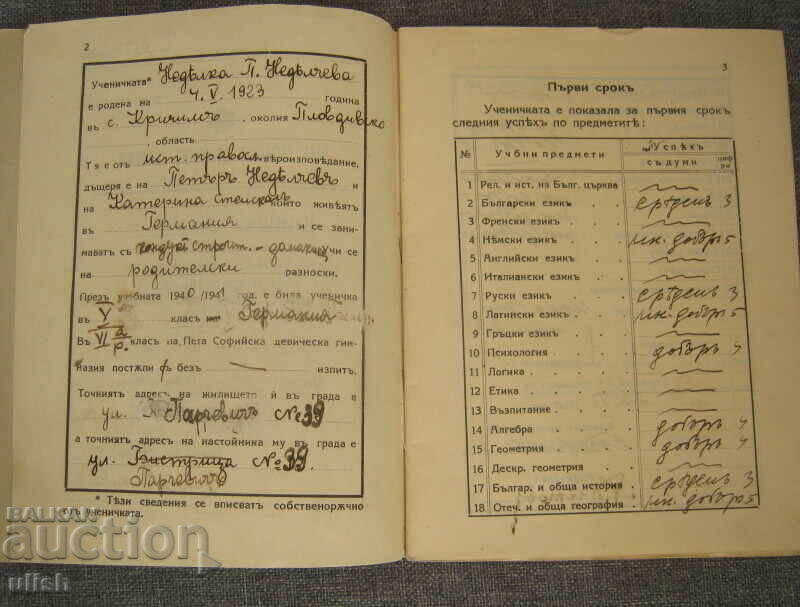 2
Ученичката* Недѣлка П. Недѣлчева
е родена на 4. V. 1923 година
въ с. Кричимъ, околия Пловдивско
, область
Тя е отъ ист. правосл. вѣроизповѣдание,
дъщеря е на Петъръ Недѣлчевъ
и на Катерина които живѣятъ
въ Германия и се зани-
маватъ съ строит. - домакиня учи се
на родителски разноски.
Презъ учебната 1940/1941 год. е била ученичка
въ V класъ Германия
Въ VI а р. класъ на Пета Софийска девическа гим-
назия постѫпи съ безъ — изпитъ.
Точниятъ адресъ на жилището ѝ въ града е
ул. Парчевичъ № 39
а точниятъ адресъ на настойника му въ града е
ул. Бистрица № 39.
Парчевичъ
* Тѣзи сведения се вписватъ собственорѫчно
отъ ученичката.
3
Първи срокъ
Ученичката е показала за първия срокъ
следния успѣхъ по предметитѣ:
№ Учбни предмети Успѣхъ
съ думи цифри
1 Рел. и ист. на Бълг. църква
2 Български езикъ срѣденъ 3
3 Френски езикъ
4 Нѣмски езикъ мн. добъръ 5
5 Английски езикъ
6 Италиански езикъ
7 Руски езикъ срѣденъ 3
8 Латински езикъ мн. добъръ 5
9 Гръцки езикъ
10 Психология добъръ 4
11 Логика
12 Етика
13 Възпитание
14 Алгебра добъръ 4
15 Геометрия добъръ 4
16 Дескр. геометрия
17 Българ. и обща история срѣденъ 3
18 Отеч. и обща география мн. добъръ 5
БАЛКАН
auction
ullsh